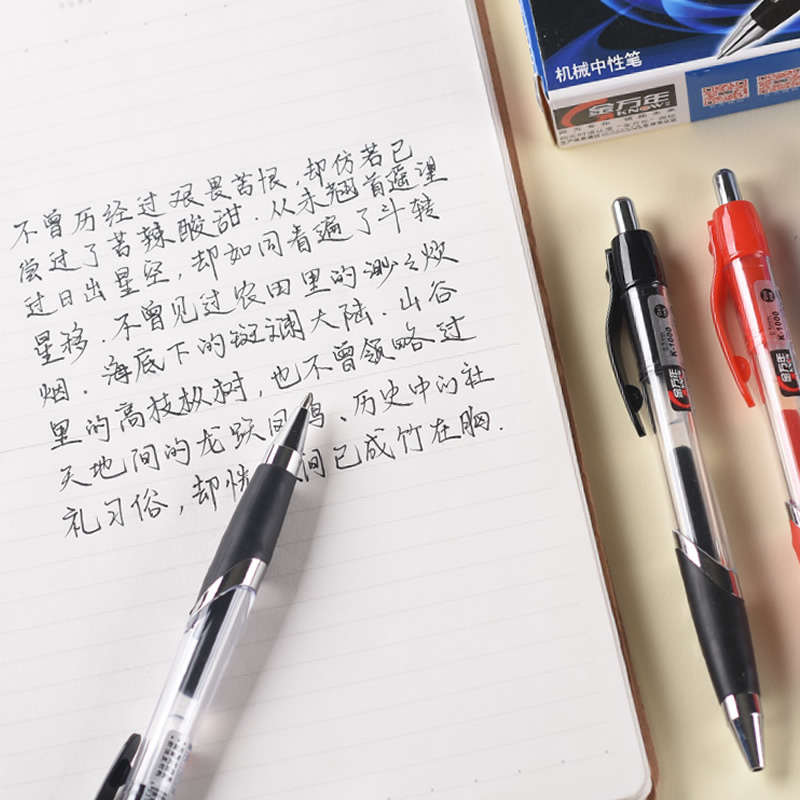 不曾历经过艰畏苦恨，却仿若已
尝过了苦辣酸甜．从未翘首遥望
过日出星空，却如同看遍了斗转
星移．不曾见过农田里的渺之炊
烟．海底下的斑斓大陆．山谷
里的高枝枞树，也不曾领略过
天地间的龙跃、历史中的社
礼习俗，却间已成竹在胸．
机械中性笔
金万年
KNOW
金万年
K-1000
0.5mm
金万年
K-1000
0.5mm